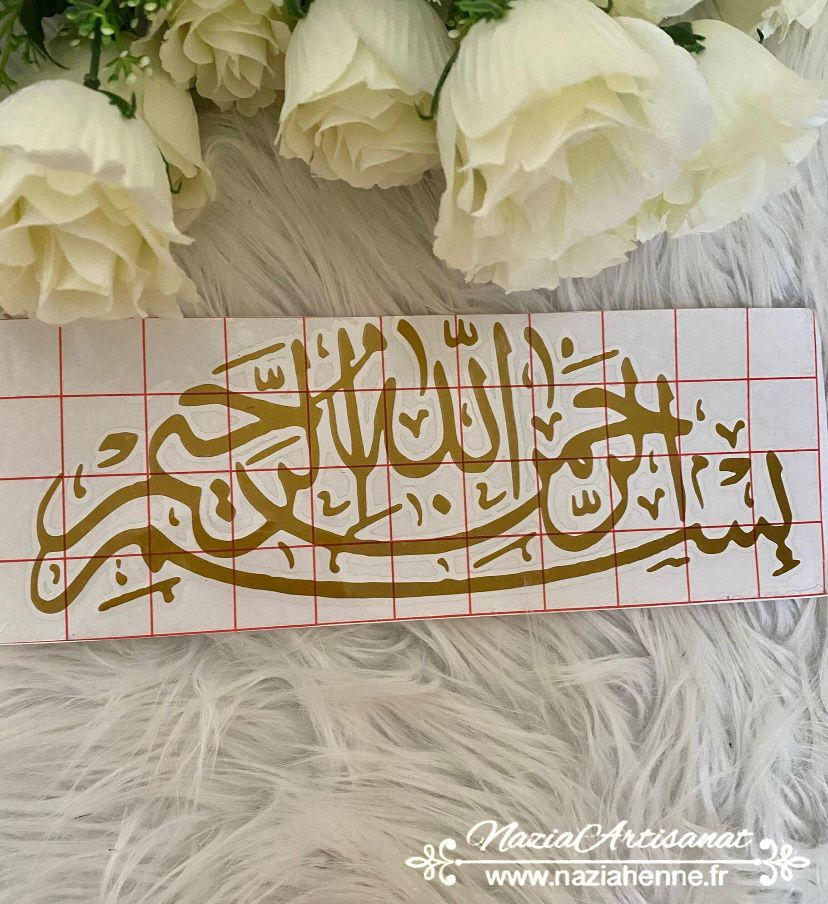 بسم الله الرحمن الرحيم
NaziaArtisanat
www.naziahenne.fr